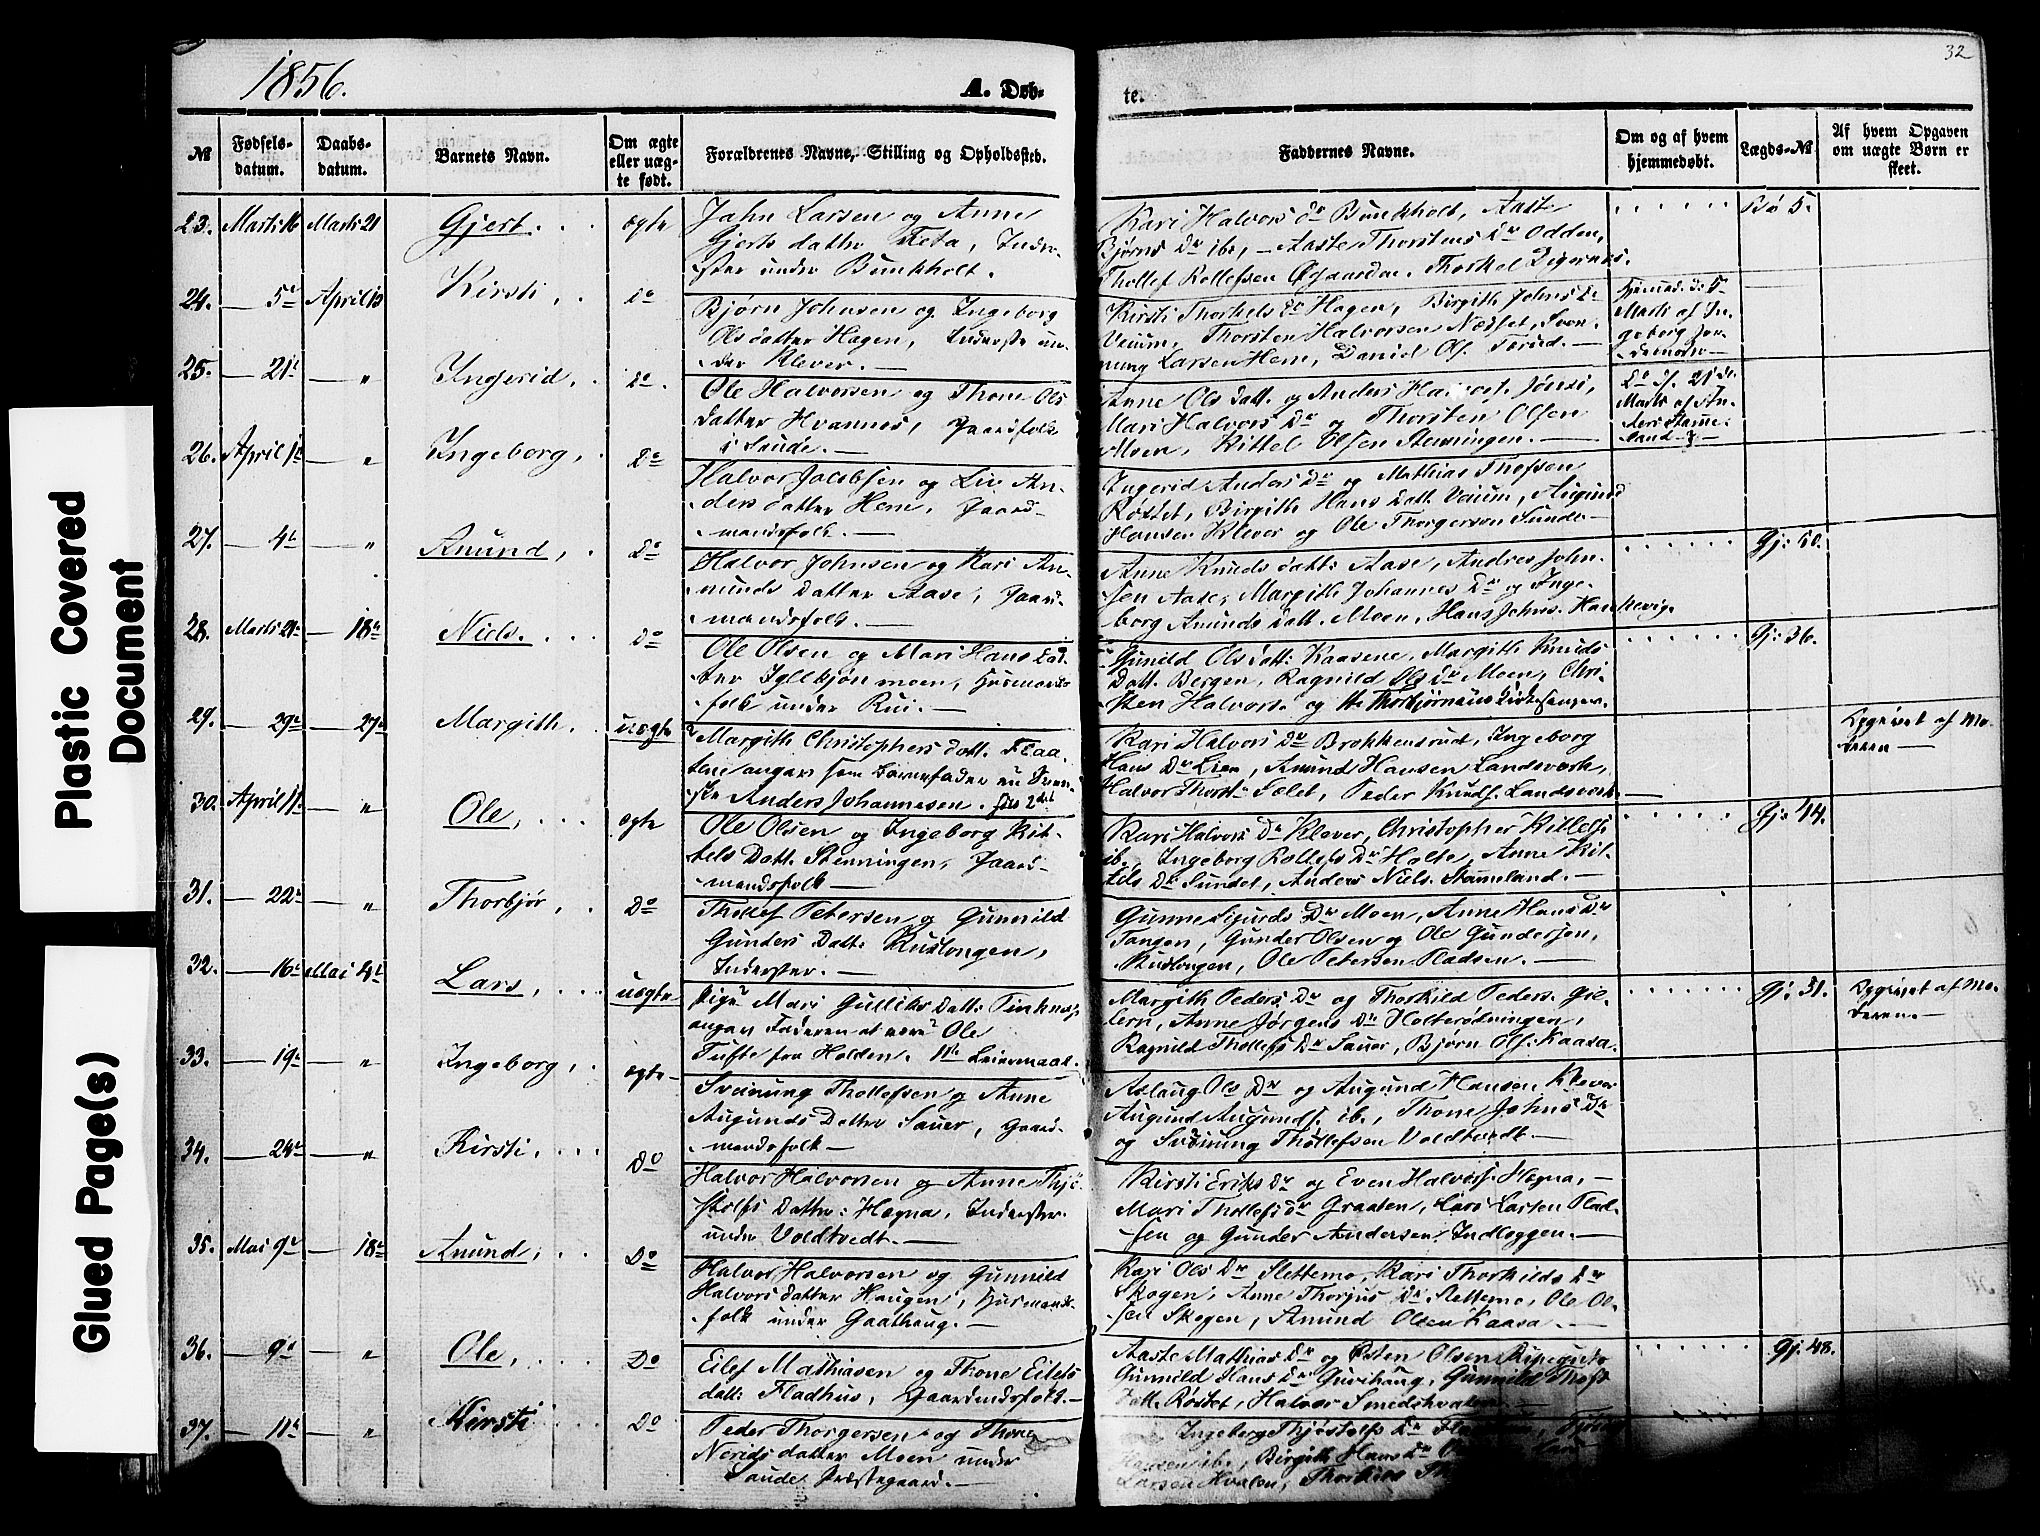 32
1856.
A. Døb-
te.
№
Fødsels-
datum.
Daabs-
datum.
Barnets Navn.
Om ægte
eller uæg-
te født.
Forældrenes Navne, Stilling og Opholdssted.
Faddernes Navne.
Om og af hvem
hjemmedøbt.
Lægds-№
Af hvem Opgaven
om uægte Børn er
skeet.
23. Marts 16 Marts 21 Gjert. ægte
Jahn Larsen og Anne
Gjerts datter Feta, Inder-
ster under Bunkholt.
Kari Halvors Dr Bunkholt, Aaste
Bjørns Dr ib., Aaste Thorstens Dr Odden,
Thollef Rollefsen Øigaarden. Thorkel Digernes.
Bø 5.
24. 5te April 13 Kirsti, do
Bjørn Johnsen og Ingeborg
Olsdatter Hagen, Inderste un-
der Klever.
Kirsti Thorkels Dr Hagen, Birgith Johns Dr
Veium, Thorsten Halvorsen Næsset, Svein-
nung Larsen Hem, Daniel Ols. Torud.
Hjemmed. d. 5te
Marts af In-
geborg Jor-
demoder
25. 21de " Ingerid, do.
Ole Halvorsen og Thone Ols
datter Hvannes, Gaardfolk
i Saude.
Anne Ols datt. og Anders Halvors. Jønsi,
Mari Halvors Dr og Thorsten Olsen
Moen, Kittel Olsen Stenningen.
Do d. 21de
Marts af An-
ders Stamme-
land
26. April 1te " Ingeborg, Do
Halvor Jacobsen og Liv An-
ders datter Hem, Gaard-
mandsfolk.
Ingerid Anders Dr og Mathias Thofsen
Røstet, Birgith Hans datt. Veium, Augund
Hansen Klever og Ole Thorgersen Sunde
27. 4de " Anund, Do
Halvor Johnsen og Kari An-
munds datter Aase, Gaard-
mandsfolk.
Anne Knuds datt: Aase, Andres John-
sen Aase, Margith Johannes Dr og Inge-
borg Anunds datt. Moen, Hans Johns. Haukevig.
Gj: 50.
28. Marts 21de 18de Niels. Do
Ole Olsen og Mari Hans dat-
ter Gyllbjønmoen, Husmands-
folk under Rui.
Gunild Ols datt: Kaasene, Margith Knuds
Datt. Bergen, Ragnild Ols Dr Moen, Chri-
sten Halvors. og Hr Thorbjørnsen Kirkesanger.
Gj: 36.
29. 29de 27de Margith. uægte
Margith Christophers datt. Flaa-
tene angav som Barnefader en Sven-
ske Anders Johannesen.
Kari Halvors Dr Brokkensrud, Ingeborg
Hans Dr Lien, Anund Hansen Landsverk,
Halvor Thorst: Sælet, Peder Knuds. Landsverk
Opgivet af Mo-
deren
30. April 11te " Ole, ægte
Ole Olsen og Ingeborg Kit-
tels Datt. Stenningen, Gaard-
mandsfolk
Kari Halvors Dr Klever, Christopher Kittels.
ib., Ingeborg Rollefs Dr Holte, Anne Kit-
tels Dr Sundet, Anders Niels. Stammeland.
Gj: 44.
31. 22de " Thorbjør, Do
Thollef Petersen og Gunnild
Gunders Datt: Kuslongen,
Inderster.
Gunne Sigurds Dr Moen, Anne Hans Dr
Tangen, Gunder Olsen og Ole Gundersen,
Kuslongen, Ole Petersen Pladsen.
32. 16de Mai 4de Lars, uægte
Pige Mari Gulliks Datt: Tinhnes,
angav Faderen at være Ole
Tufte fra Holden. 1te Leiermaal.
Margith Peders Dr og Thorkild Peders. Gil-
lern, Anne Jørgens Dr Holterødningen,
Ragnild Thollefs Dr Sauer, Bjørn Ols. Kaasa.
Gj. 51.
Opgivet af Mo-
deren.
33. 19de " Ingeborg, ægte
Sveinung Thollefsen og Anne
Augunds Datter Sauer, Gaard-
mandsfolk
Aslaug Ols Dr og Augund Hansen Klever
Augund Augunds. ib., Thone Johns Dr
og Sveinung Thollefsen Voldtvedt.
34. 24de " Kirsti, Do
Halvor Halvorsen og Anne Thjø-
stolfs datter: Høgna, Inderster
under Voldtvedt.
Kirsti Eriks Dr og Even Halvors. Høgna,
Mari Thollefs Dr Graaten, Lars Larsen Plad-
sen og Gunder Andersen Indleggen.
35. Mai 9de 18de Anund, Do
Halvor Halvorsen og Gunnild
Halvors datter Haugen, Husmands-
folk under Gaathaug.
Kari Ols Dr Slettemo, Kari Thorkilds Dr
Skogen, Anne Thorjus Dr Slettemo, Ole Ol-
sen Skogen, Anund Olsen Kaasa.
36. 9de " Ole, Do
Eilef Mathiasen og Thone Eilefs
datt: Fladhus, Gaardmdsfolk.
Aaste Mathias Dr og Østen Olsen
Gunnild Hans Dr Gurihaug, Gunnild Thofs
Datt. Røstet, Halvor
Gj: 48.
37. 11te " Kirsti Do
Peder Thorgersen og Thone
Nerids datter Moen under
Saude Præstegaard.
Ingeberg Thjøstolfs Dr
Hansen ib., Birgith Hans Dr
Larsen Hvalen, Thorkies
Plastic Covered
Document
Glued Page(s)